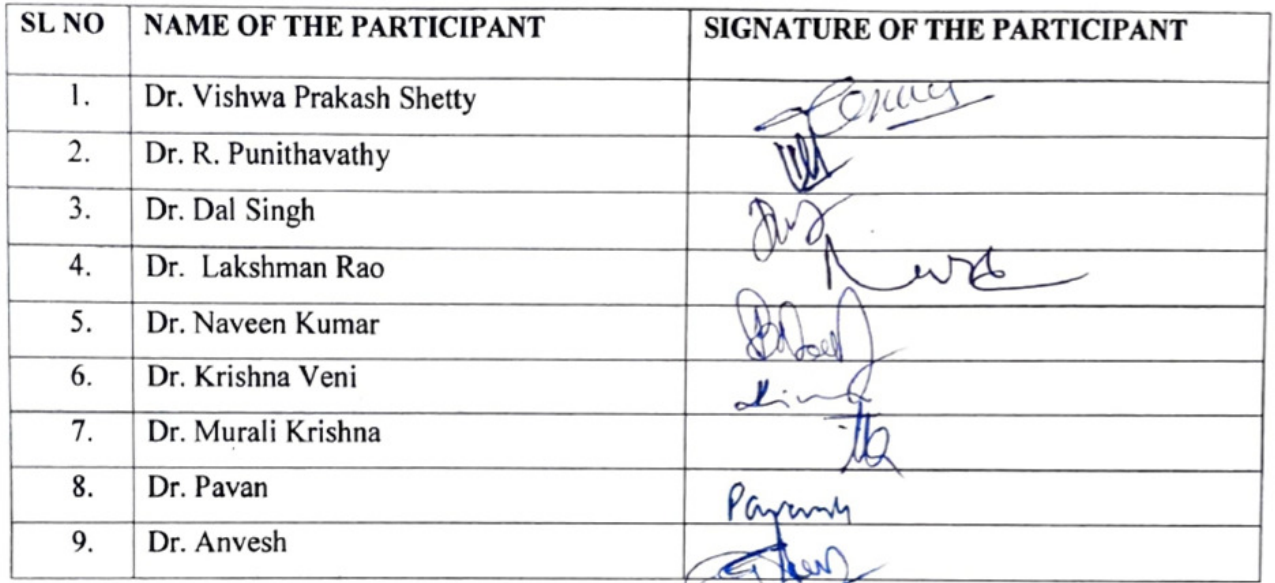 SL NO NAME OF THE PARTICIPANT SIGNATURE OF THE PARTICIPANT
1. Dr. Vishwa Prakash Shetty
2. Dr. R. Punithavathy
3. Dr. Dal Singh
4. Dr. Lakshman Rao
5. Dr. Naveen Kumar
6. Dr. Krishna Veni
7. Dr. Murali Krishna
8. Dr. Pavan
9. Dr. Anvesh